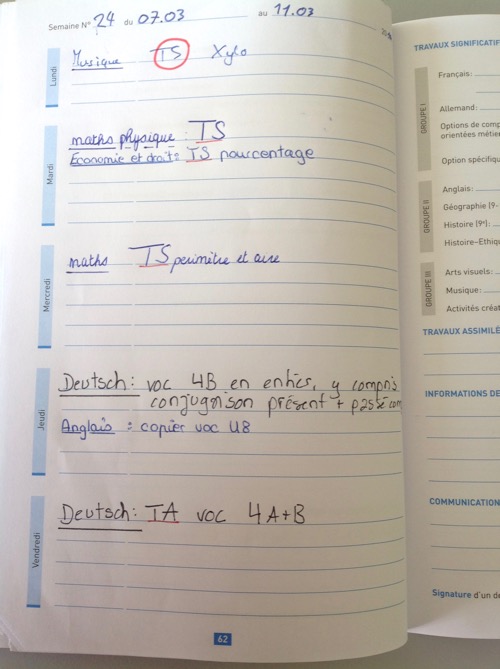 Semaine N° 24 du 07.03 au 11.03
Lundi
Musique TS Xylo
Mardi
maths physique : TS
Économie et droit : TS pourcentage
Mercredi
maths TS périmètre et aire
Jeudi
Deutsch : voc 4B en entier, y compris
conjugaison présent + passé com
Anglais : copier voc U8
Vendredi
Deutsch : TA voc 4A+B
62
TRAVAUX SIGNIFICATIF
GROUPE I
Français :
Allemand :
Options de comp
orientées métie
Option spécifiqu
GROUPE II
Anglais :
Géographie (9-
Histoire (9e) :
Histoire-Ethiqu
GROUPE III
Arts visuels :
Musique :
Activités créat
TRAVAUX ASSIMILÉ
INFORMATIONS DE
COMMUNICATION
Signature d'un de